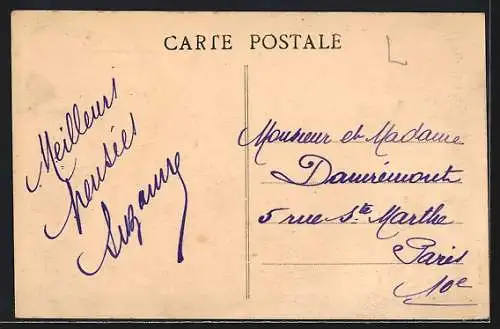 CARTE POSTALE
Meilleurs
pensées
Suzanne
Monsieur et Madame
Damrémont
5 rue Ste Marthe
Paris
10e